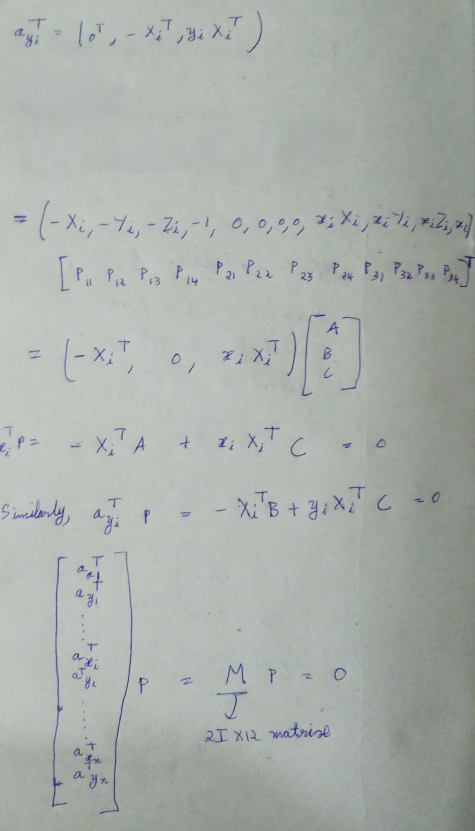 a_{y_i}^T = (0^T, -X_i^T, y_i X_i^T)
= (-X_i, -Y_i, -Z_i, -1, 0, 0, 0, 0, x_i X_i, x_i Y_i, x_i Z_i, x_i)
[P_{11} P_{12} P_{13} P_{14} P_{21} P_{22} P_{23} P_{24} P_{31} P_{32} P_{33} P_{34}]^T
= (-X_i^T, 0, x_i X_i^T) [A B C]
x_i^T P = -X_i^T A + x_i X_i^T C = 0
Similarly, a_{y_i}^T P = -X_i^T B + y_i X_i^T C = 0
[a_{x_1}^T
a_{y_1}^T
.....
a_{x_i}^T
a_{y_i}^T
.....
a_{x_n}^T
a_{y_n}^T] P = M P = 0
2I X12 matrise